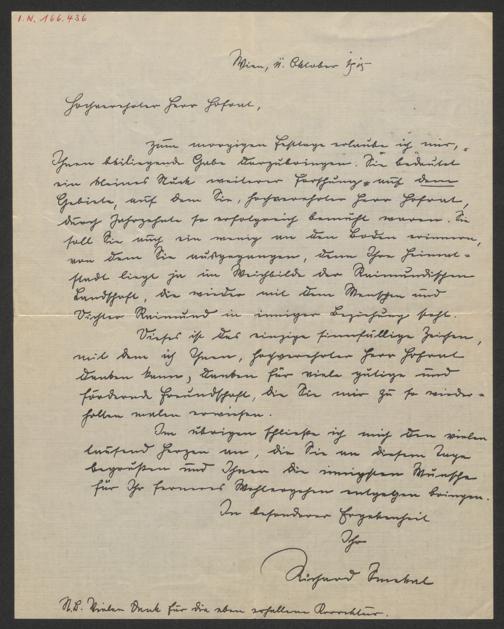 I.N. 166.436
Wien, Oktober
Hochverehrter Herr Hofrat,
Zum morgigen Festtage erlaube ich mir,
Ihnen beiliegende Gabe darzubringen. Sie bedeutet
ein kleines Stück weiterer Forschung auf dem
Gebiete, auf dem Sie, hochverehrter Herr Hofrat,
durch Jahrzehnte so erfolgreich bemüht waren. Sie
soll Sie auch ein wenig an den Boden erinnern,
von dem Sie ausgegangen, denn Ihre Heimat-
stadt liegt ja im Weichbilde der Raimundischen
Landschaft, die wieder mit dem Menschen und
Dichter Raimund in inniger Beziehung steht.
Dieses ist das einzige sinnfällige Zeichen,
mit dem ich Ihnen, hochverehrter Herr Hofrat
danken kann, danken für viele gütige und
fördernd Freundschaft, die Sie mir zu so wieder-
holten malen erwiesen.
Im übrigen schließe ich mich den vielen
tausend Herzen an, die Sie an diesem Tage
begrüßen und Ihnen die innigsten Wünsche
für Ihr ferneres Wohlergehen entgegen bringen.
In besonderer Ergebenheit
Ihr
Richard Smekal
N.B. Vielen Dank für die eben erhaltene Korrektur.